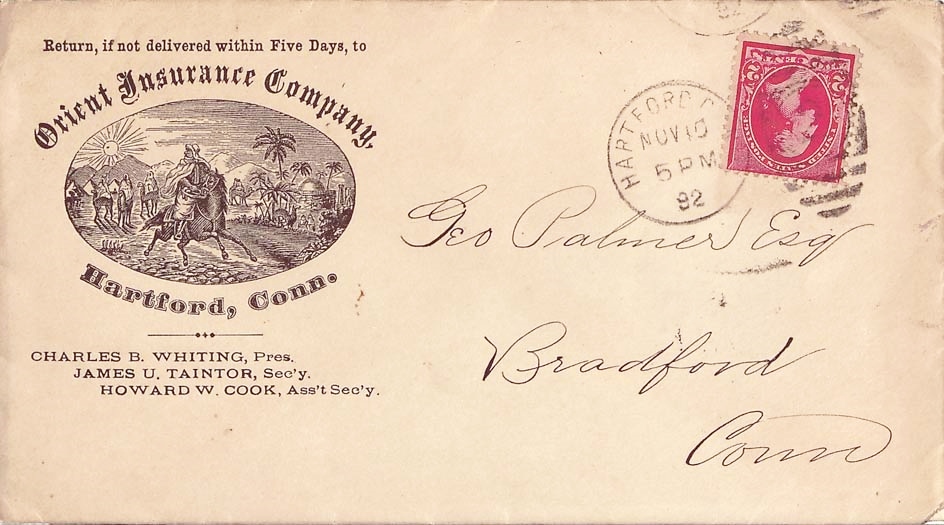 Return, if not delivered within Five Days, to
Orient Insurance Company,
Hartford, Conn.
CHARLES B. WHITING, Pres.
JAMES U. TAINTOR, Sec'y.
HOWARD W. COOK, Ass't Sec'y.
HARTFORD C
NOV 10
5 PM
92
Geo Palmer Esq
Bradford
Conn